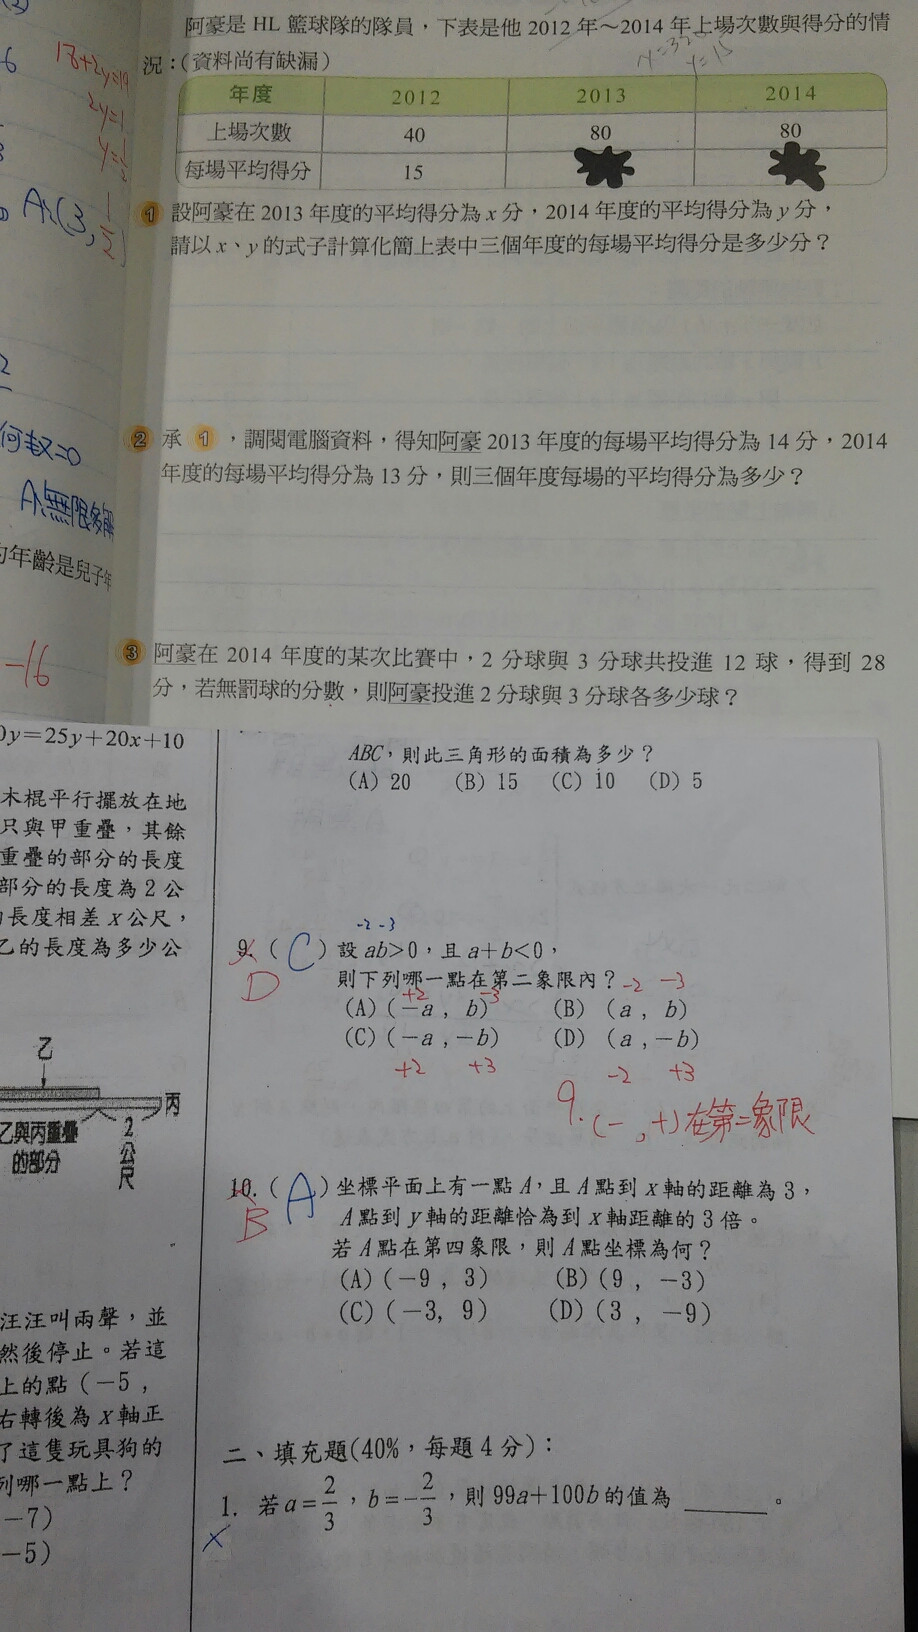 阿豪是 HL 籃球隊的隊員，下表是他 2012 年～2014 年上場次數與得分的情
況：(資料尚有缺漏)
年度 2012 2013 2014
上場次數 40 80 80
每場平均得分 15
1 設阿豪在 2013 年度的平均得分為 x 分，2014 年度的平均得分為 y 分，
請以 x、y 的式子計算化簡上表中三個年度的每場平均得分是多少分？
2 承 1 ，調閱電腦資料，得知阿豪 2013 年度的每場平均得分為 14 分，2014
年度的每場平均得分為 13 分，則三個年度每場的平均得分為多少？
3 阿豪在 2014 年度的某次比賽中，2 分球與 3 分球共投進 12 球，得到 28
分，若無罰球的分數，則阿豪投進 2 分球與 3 分球各多少球？
18+2y=19
2y=1
y=1/2
A:(3, 1/2)
何數=0
A:無限多解
的年齡是兒子年
-16
y=15
y=25y+20x+10
木棍平行擺放在地
只與甲重疊，其餘
重疊的部分的長度
部分的長度為 2 公
的長度相差 x 公尺，
乙的長度為多少公
乙
丙
乙與丙重疊
的部分
2
公
尺
汪汪叫兩聲，並
然後停止。若這
上的點 (－5，
右轉後為 x 軸正
了這隻玩具狗的
列哪一點上？
－7)
－5)
ABC，則此三角形的面積為多少？
(A) 20 (B) 15 (C) 10 (D) 5
-2 -3
9. ( C ) 設 ab>0，且 a+b<0，
D
則下列哪一點在第二象限內？
+2 -3 -2 -3
(A) (－a，b) (B) (a，b)
(C) (－a，－b) (D) (a，－b)
+2 +3 -2 +3
9. (－,＋)在第二象限
10. ( A ) 坐標平面上有一點 A，且 A 點到 x 軸的距離為 3，
B
A 點到 y 軸的距離恰為到 x 軸距離的 3 倍。
若 A 點在第四象限，則 A 點坐標為何？
(A) (－9，3) (B) (9，－3)
(C) (－3, 9) (D) (3，－9)
二、填充題(40%，每題 4 分)：
1. 若 a=2/3，b=－2/3，則 99a+100b 的值為 ______。